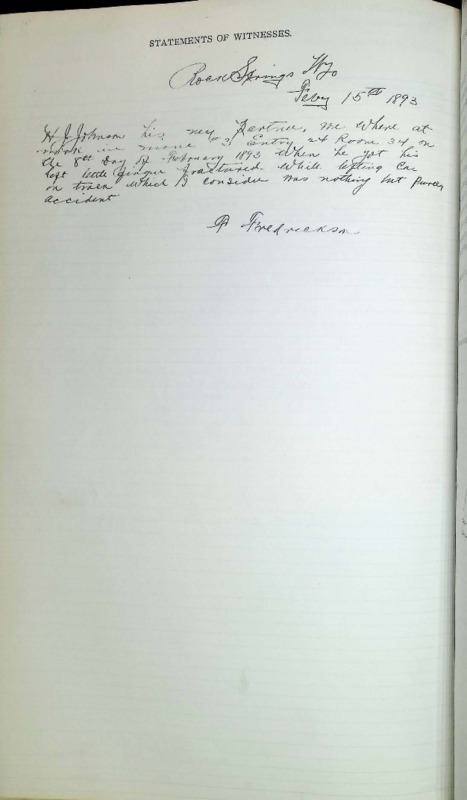 STATEMENTS OF WITNESSES.
Rock Springs Wyo
Feby 15th 1893
H J Johnson his my Partner, we where at
work in mine no 3 Entry 24 Room 34 on
the 8th Day of February 1893 When he got his
left little finger fractured While lifting Car
on track which I consider was nothing but purely
accident
P Fredrickson